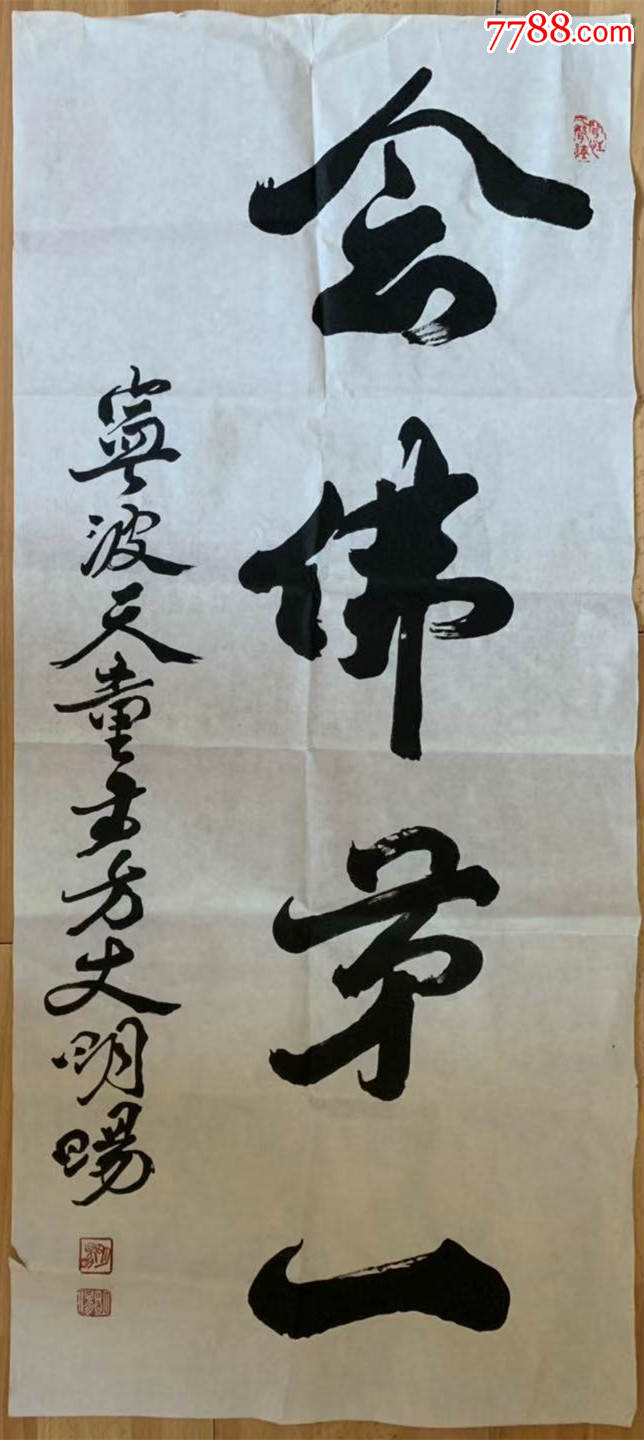 7788.com
念佛第一
寧波天童寺方丈明暘